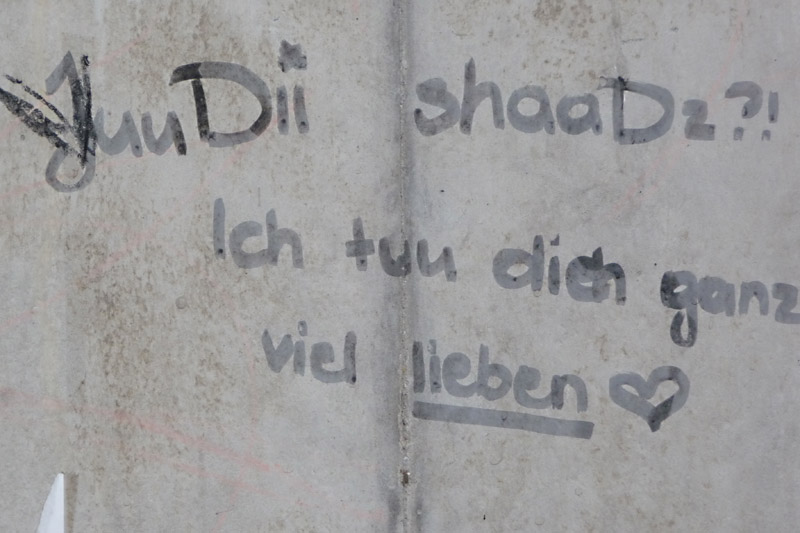 JuuDii shaaDz?!
Ich tuu dich ganz
viel lieben ♡